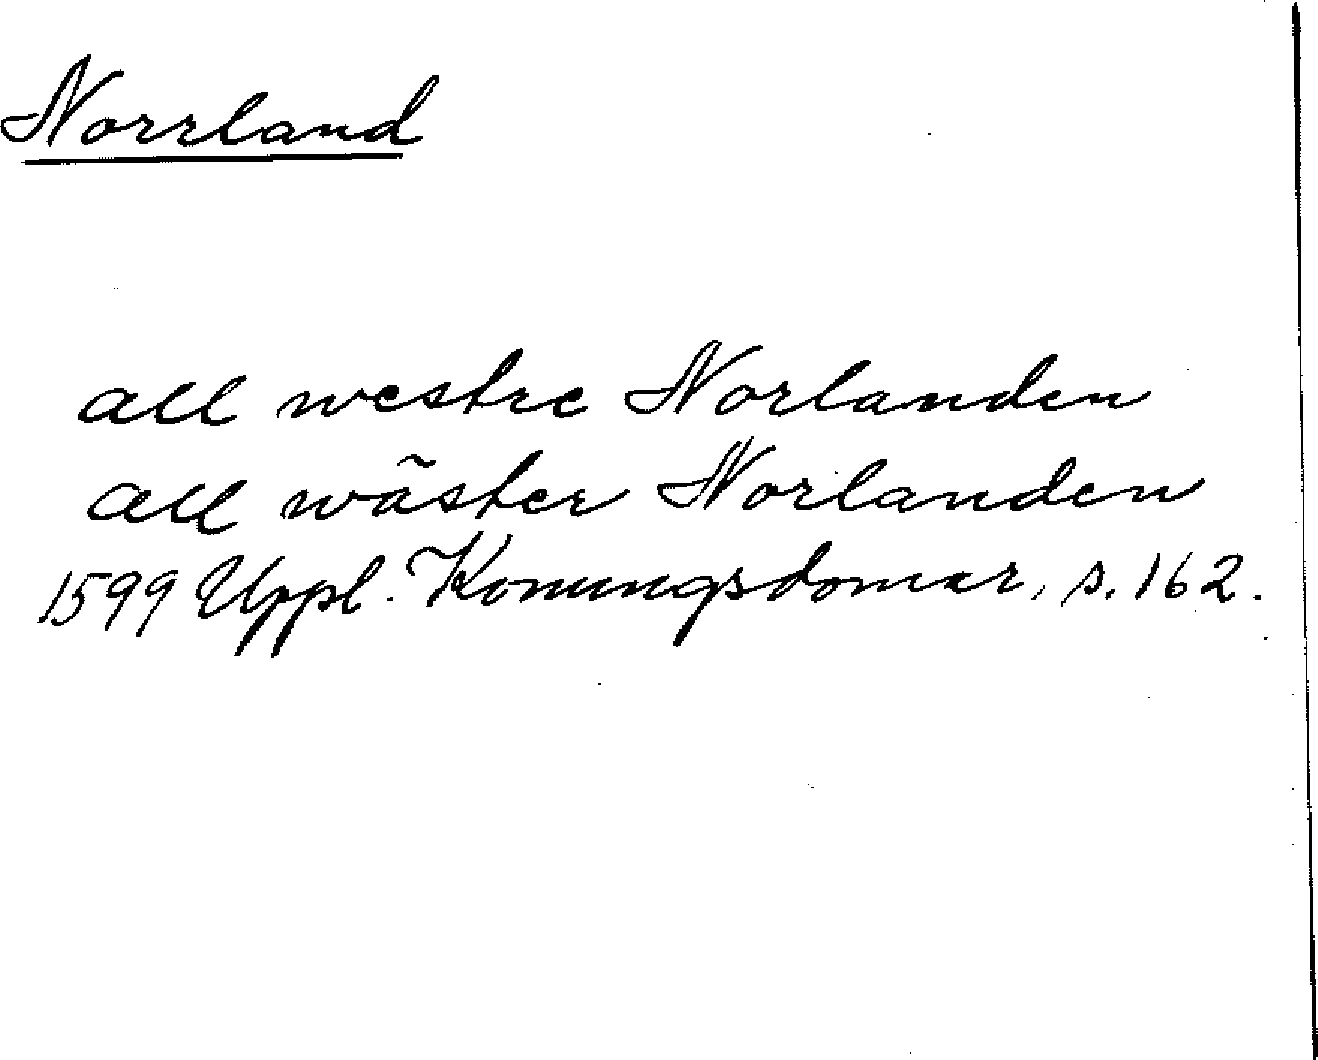 Norrland
all westre Norlanden
all wäster Norlanden
1599 Uppl. Konungsdomar, s. 162.